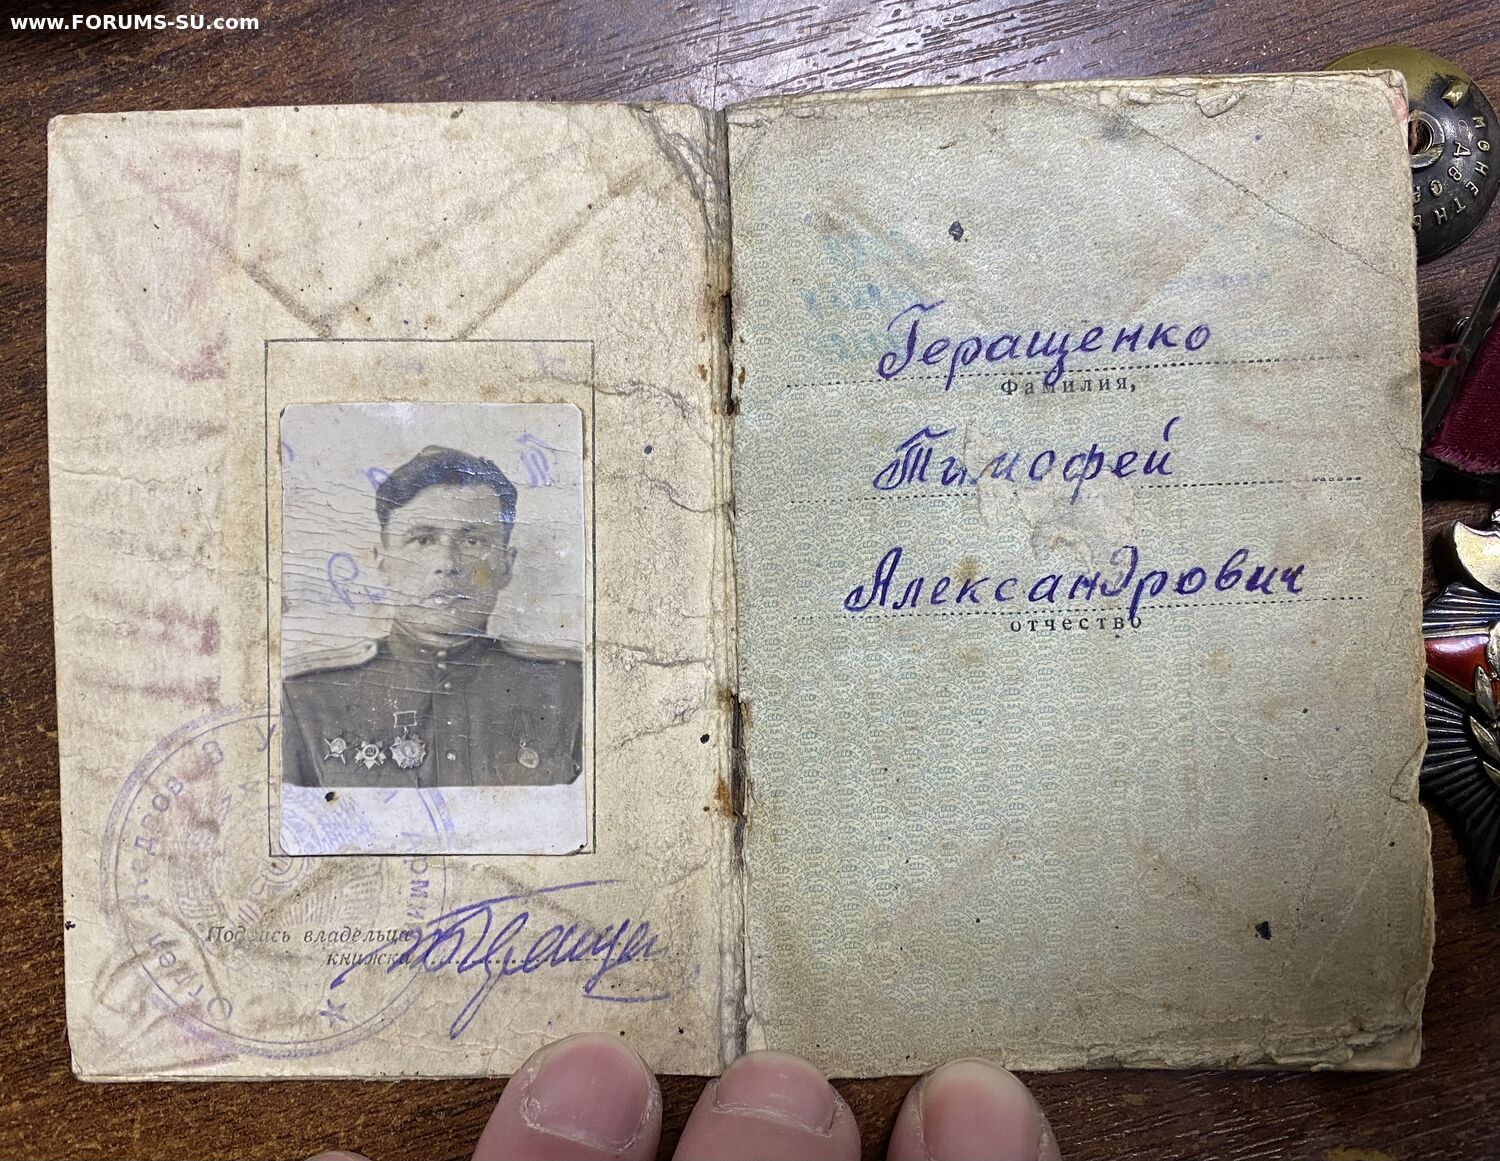 www.FORUMS-SU.com
Геращенко
Фамилия,
Тимофей
Александрович
отчество
Отдел кадров
Армии
Подпись владельца
книжки
МОНЕТН